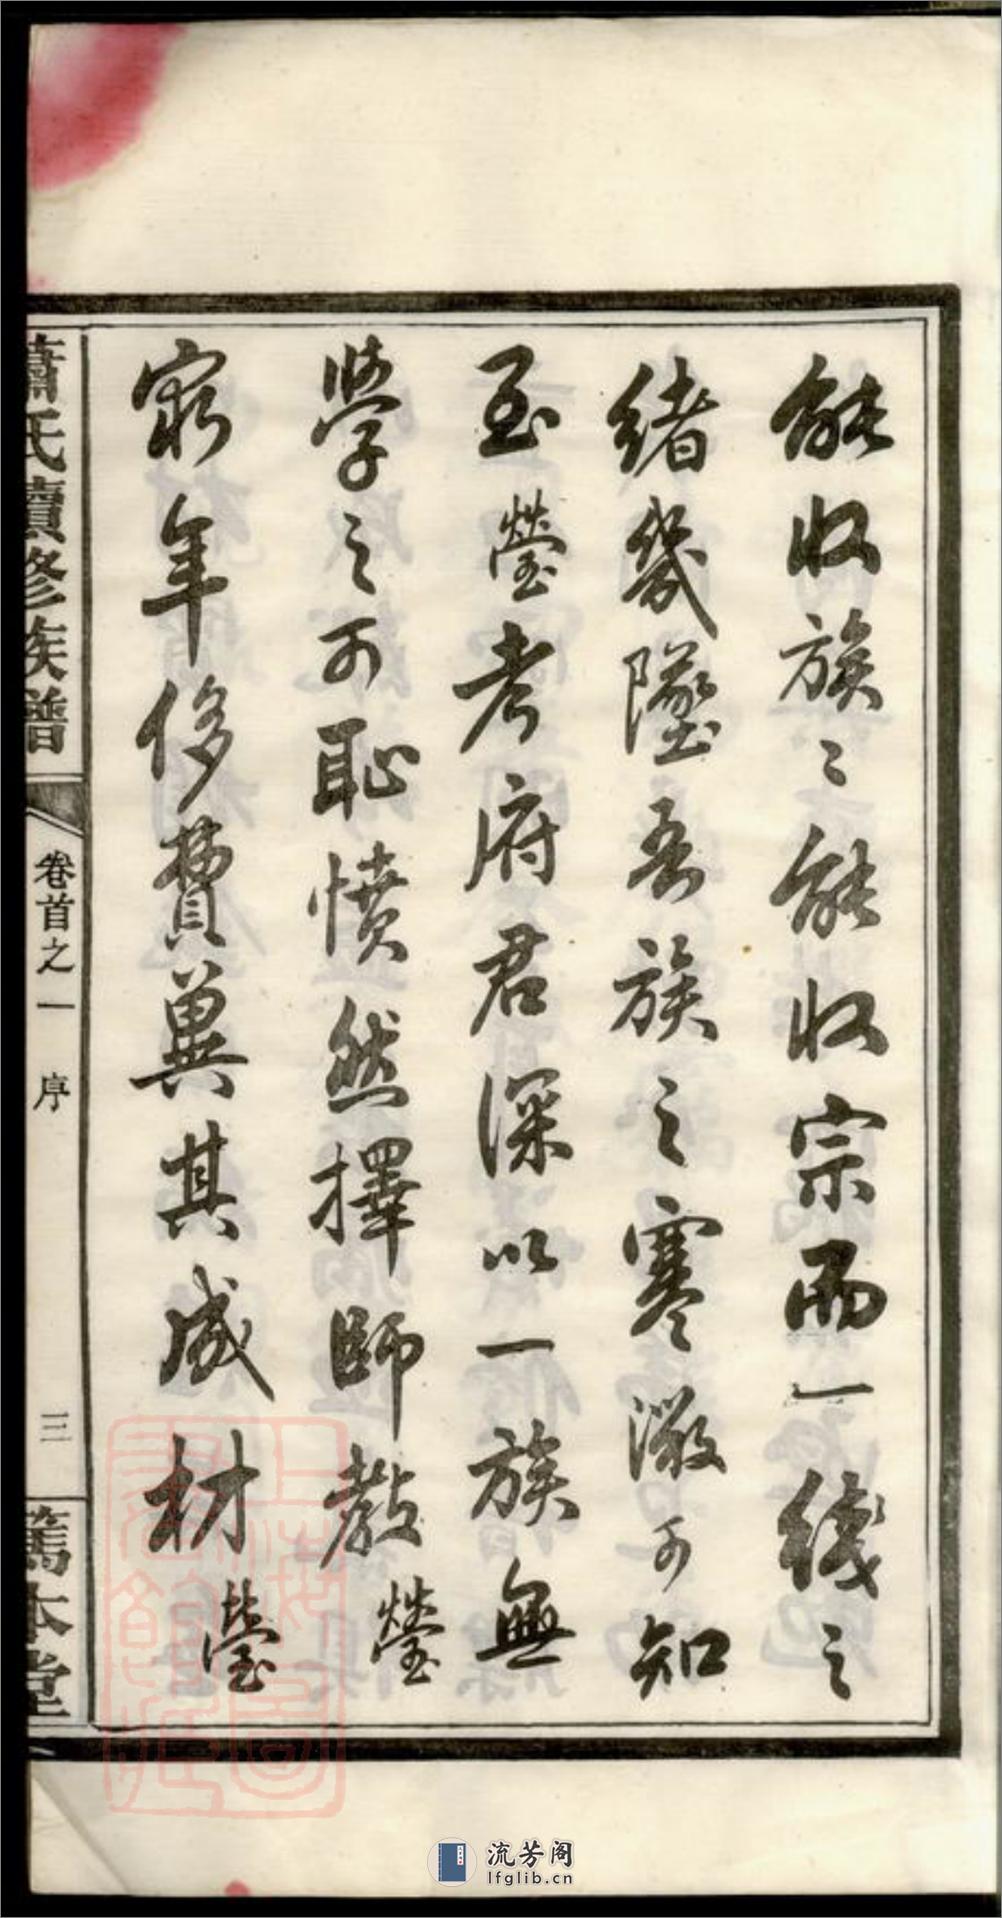 能收族〻能收宗而一綫之
緒幾墜吾族之寒微可知
至瑩考府君深以一族無
學之可恥憤然擇師教瑩
窮年侈費冀其成材瑩
蕭氏續修族譜
卷首之一 序
三
篤本堂
上海圖書館藏
流芳阁
lfglib.cn